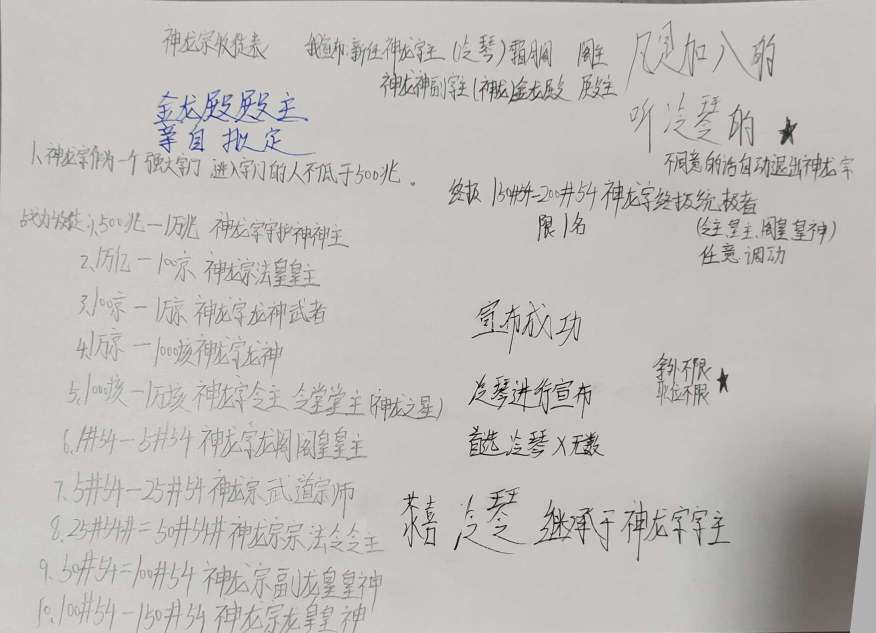 神龙宗收徒表
我宣布新任神龙字主(冷琴)霜阁 阁主
神龙神副字主(神龙)金龙殿 殿主
凡是加入的
听冷琴的 ★
不同意的话自动退出神龙字
金龙殿殿主
亲自拟定
1、神龙宗作为一个强大字门 进入字门的人不低于500兆。
战力 1、500兆—1万兆 神龙字守护神神主
2、1万亿—100京 神龙宗法皇皇主
3、100京—1万京 神龙字龙神武者
4、1万京—1000核神龙字龙神
5、1000核—1万核 神龙字令主 令堂堂主(神龙之星)
6、1#54—5#54 神龙字龙阁阁皇皇主
7、5#54—25#54神龙宗武道宗师
8、25#54#=50#54#神龙宗宗法令令主
9、50#54=100#54 神龙宗副龙皇皇神
10、100#54—150#54 神龙宗龙皇皇神
终极 150#54—200#54 神龙字终极统极者
限1名
(令主、皇主、阁皇、皇神)
任意调动
宣布成功
冷琴进行宣布
首选 冷琴X无数
字外不限
职位不限 ★
恭喜 冷琴 继承于神龙字字主